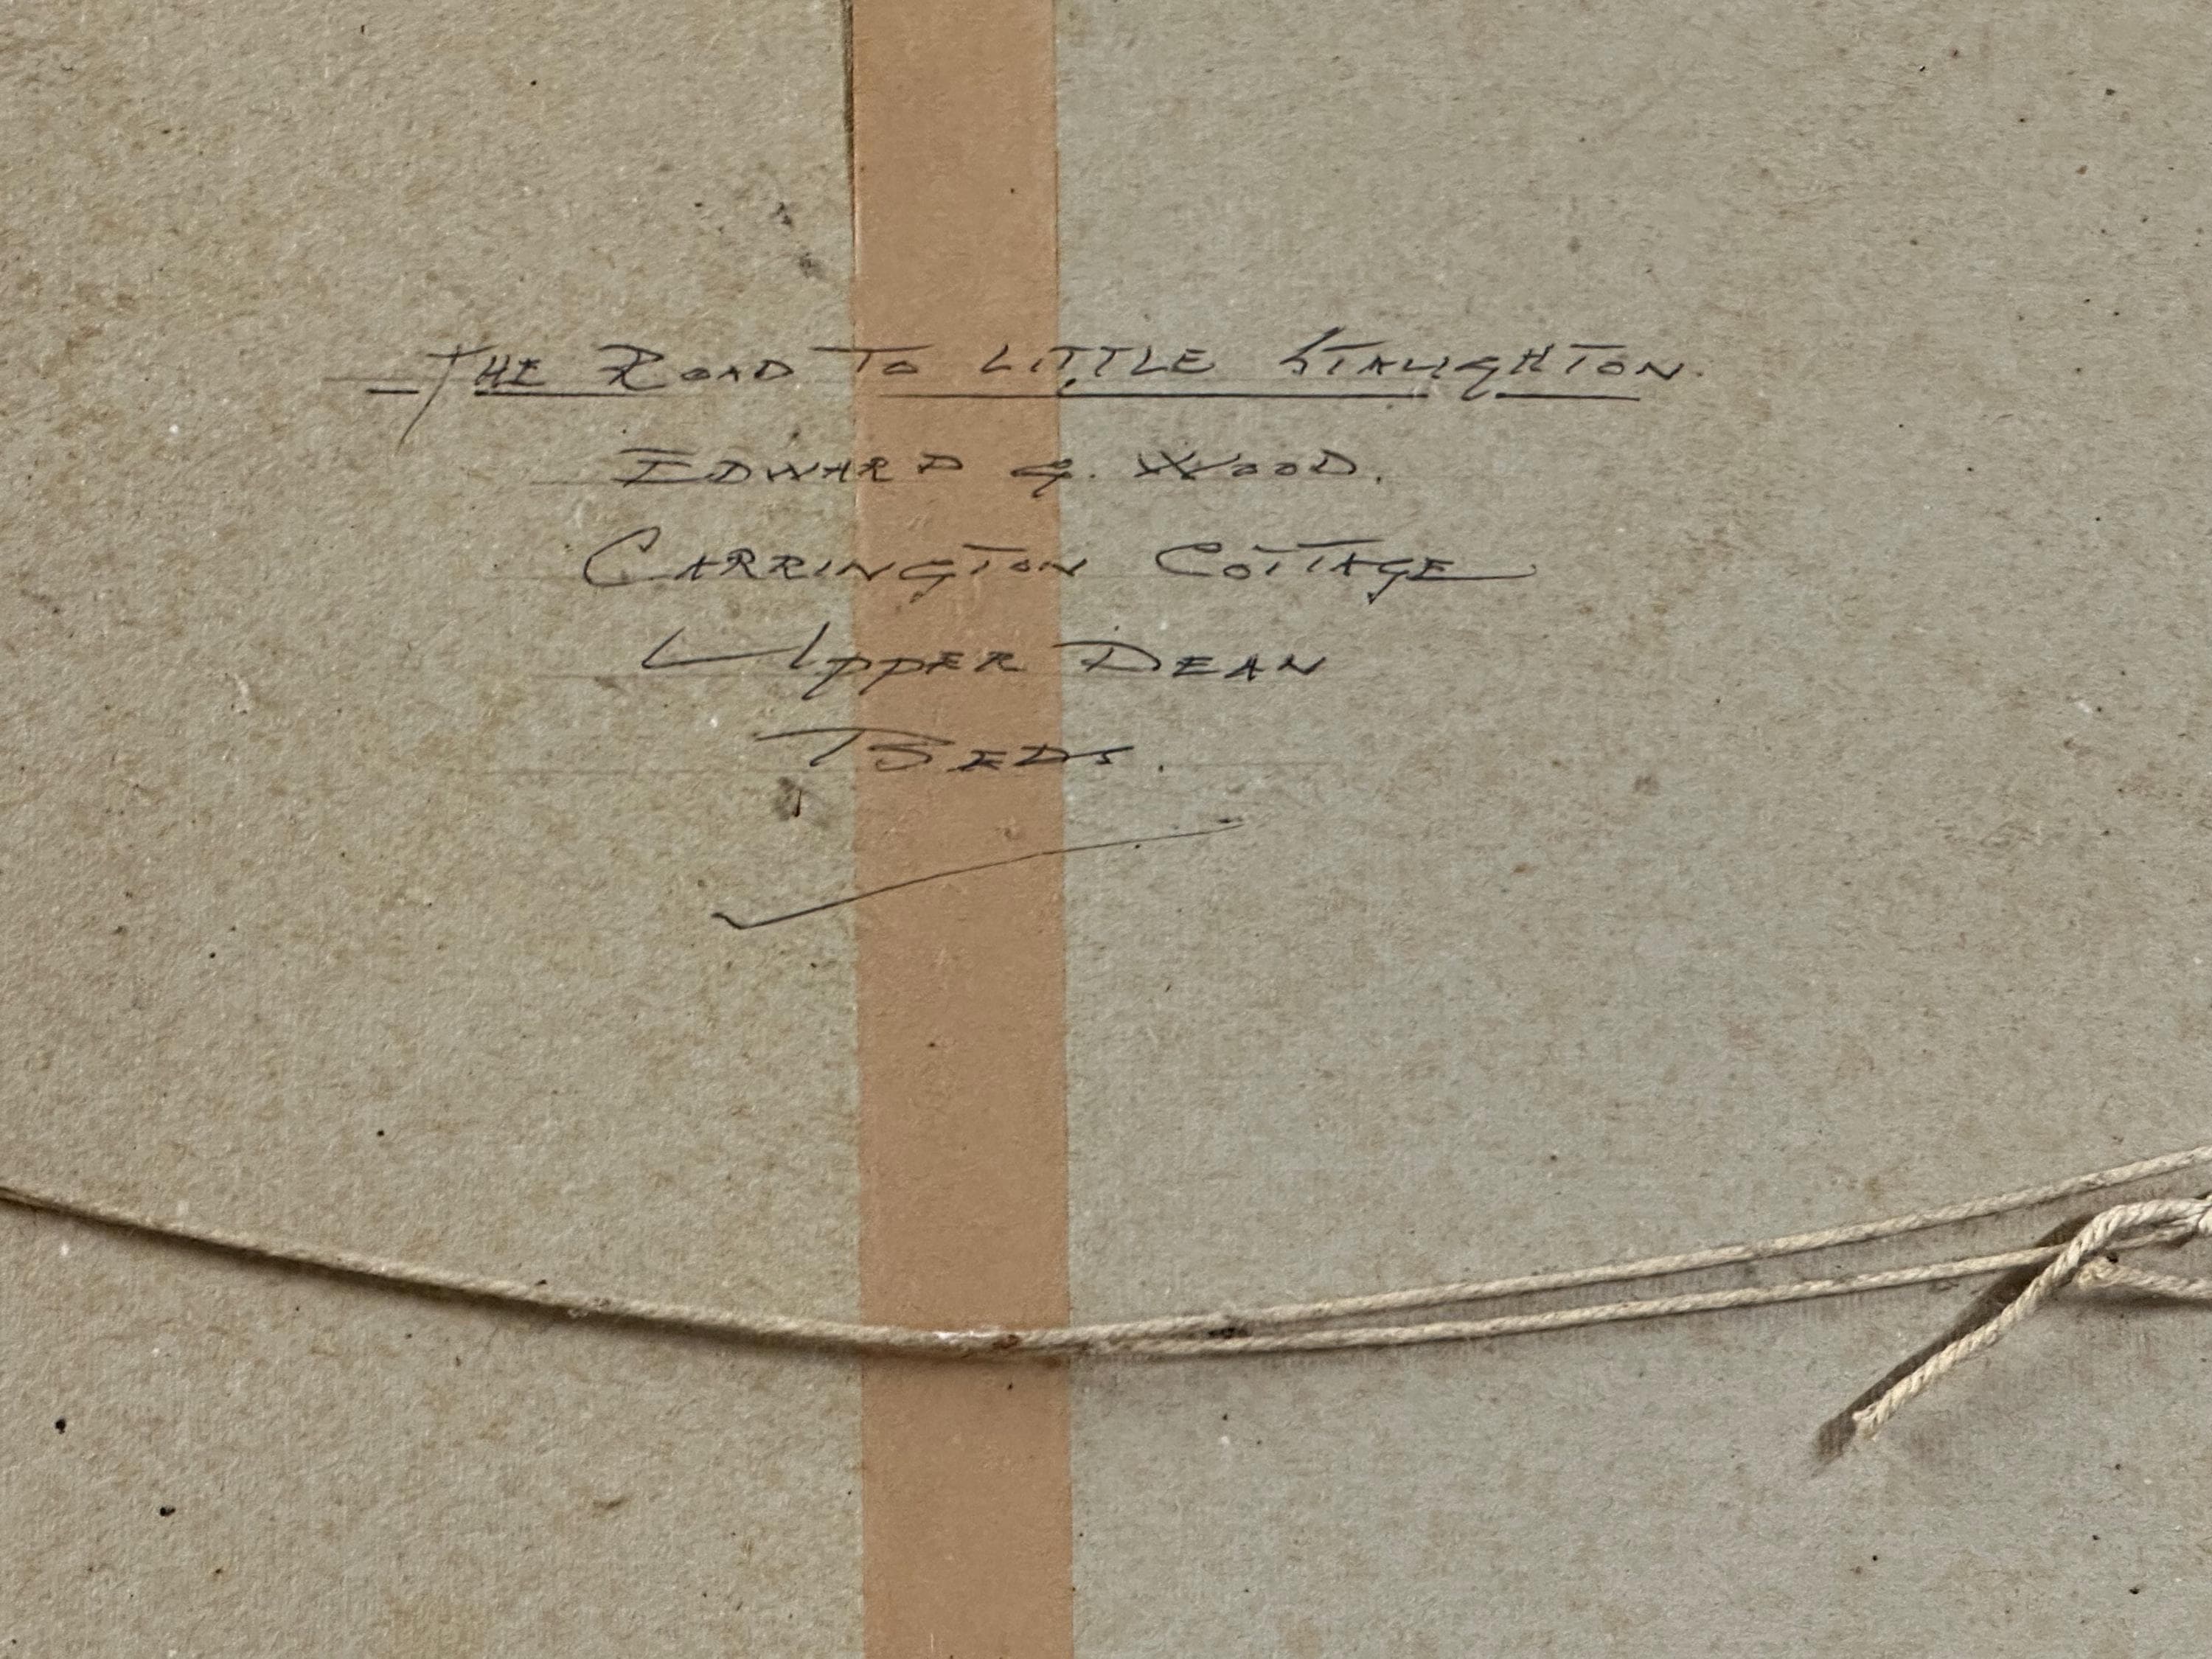 THE ROAD TO LITTLE STAUGHTON.
EDWARD G. WOOD.
CARRINGTON COTTAGE
UPPER DEAN
BEDS.